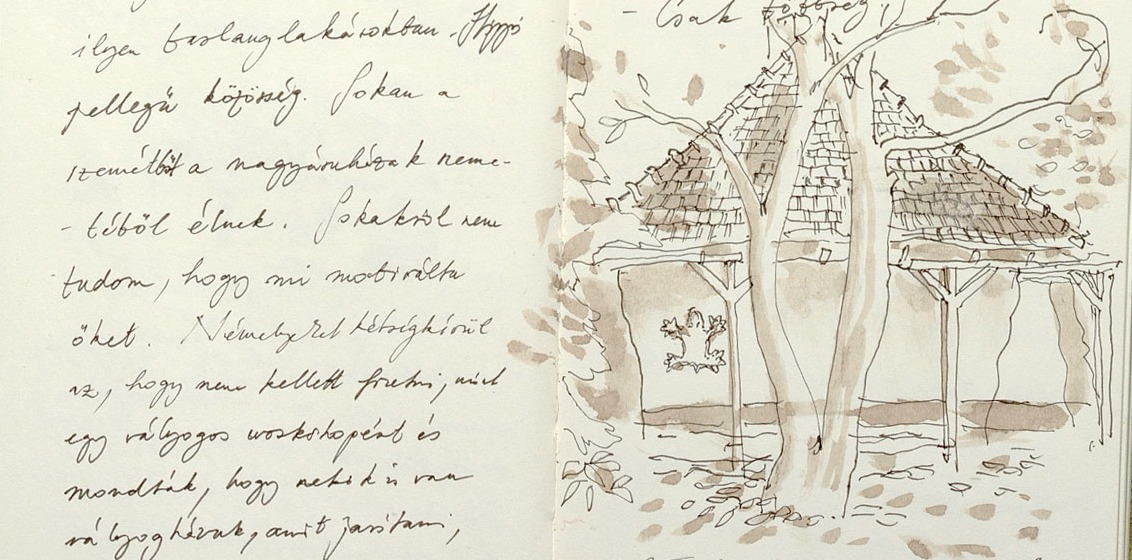 ilyen barlanglakásokban. Hippi
jellegű közösség. Sokan a
szemétből a nagyáruházak neme-
- téből élnek. Sokakról nem
tudom, hogy mi motiválta
őket. Némelyeket kétségkívül
az, hogy nem kellett fizetni, mint
egy vályogos workshopért és
mondták, hogy nekik is van
vályogházuk, amit javítani,
- Csak